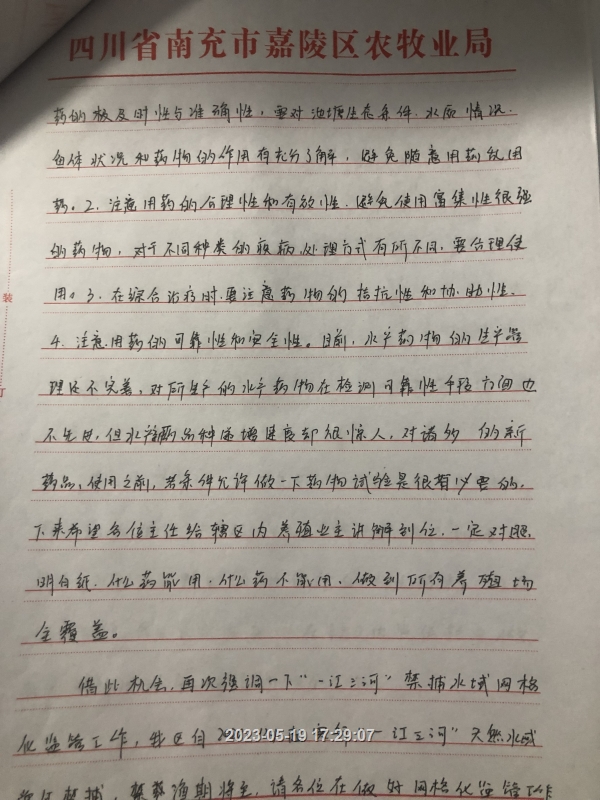 四川省南充市嘉陵区农牧业局
药的极及时性与准确性，要对池塘生态条件、水质情况、
鱼体状况和药物的作用有充分了解，避免随意用药乱用
药。2、注意用药的合理性和有效性、避免使用富集性很强
的药物，对于不同种类的疾病处理方式有所不同，要合理使
用。3、在综合治疗时，要注意药物的拮抗性和协助性、
4、注意用药的可靠性和安全性。目前，水产药物的生产器
理还不完善，对所生产的水产药物在检测可靠性手段方面也
不先进，但水产药品种递增速度却很惊人，对诸多 的新
药品，使用之前，若条件允许做一下药物试验是很有必要的。
下来希望各位主任给辖区内养殖业主讲解到位，一定对照
明白纸，什么药能用，什么药不能用、做到所有养殖场
全覆盖。
借此机会，再次强调一下“一江三河”禁捕水域网格
化监管工作，我区自 一江三河”天然水域
禁捕，禁 渔期将至，请各位在做好网格化监管工作
装
订
2023-05-19 17:29:07